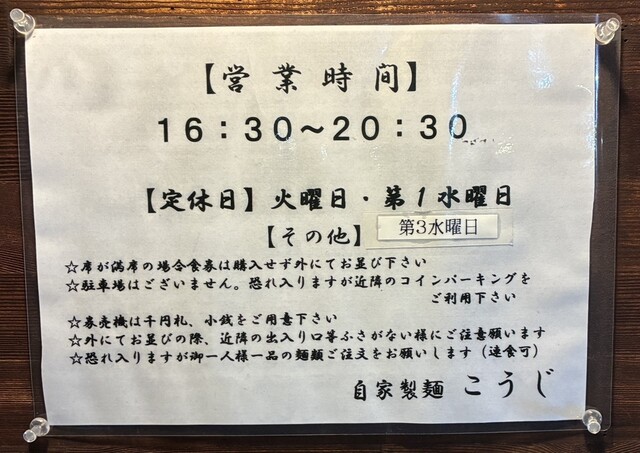 【営業時間】
16:30～20:30
【定休日】火曜日・第1水曜日
【その他】第3水曜日
☆席が満席の場合食券は購入せず外にてお並び下さい
☆駐車場はございません。恐れ入りますが近隣のコインパーキングを
ご利用下さい
☆券売機は千円札、小銭をご用意下さい
☆外にてお並びの際、近隣の出入り口等ふさがない様にご注意願います
☆恐れ入りますが御一人様一品の麺類ご注文をお願いします（連食可）
自家製麺 こうじ